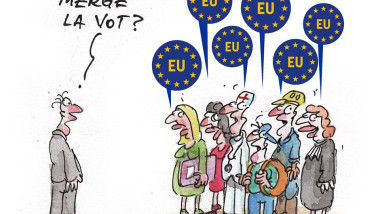 MERGE
LA VOT?
EU
EU
EU
EU
EU
EU